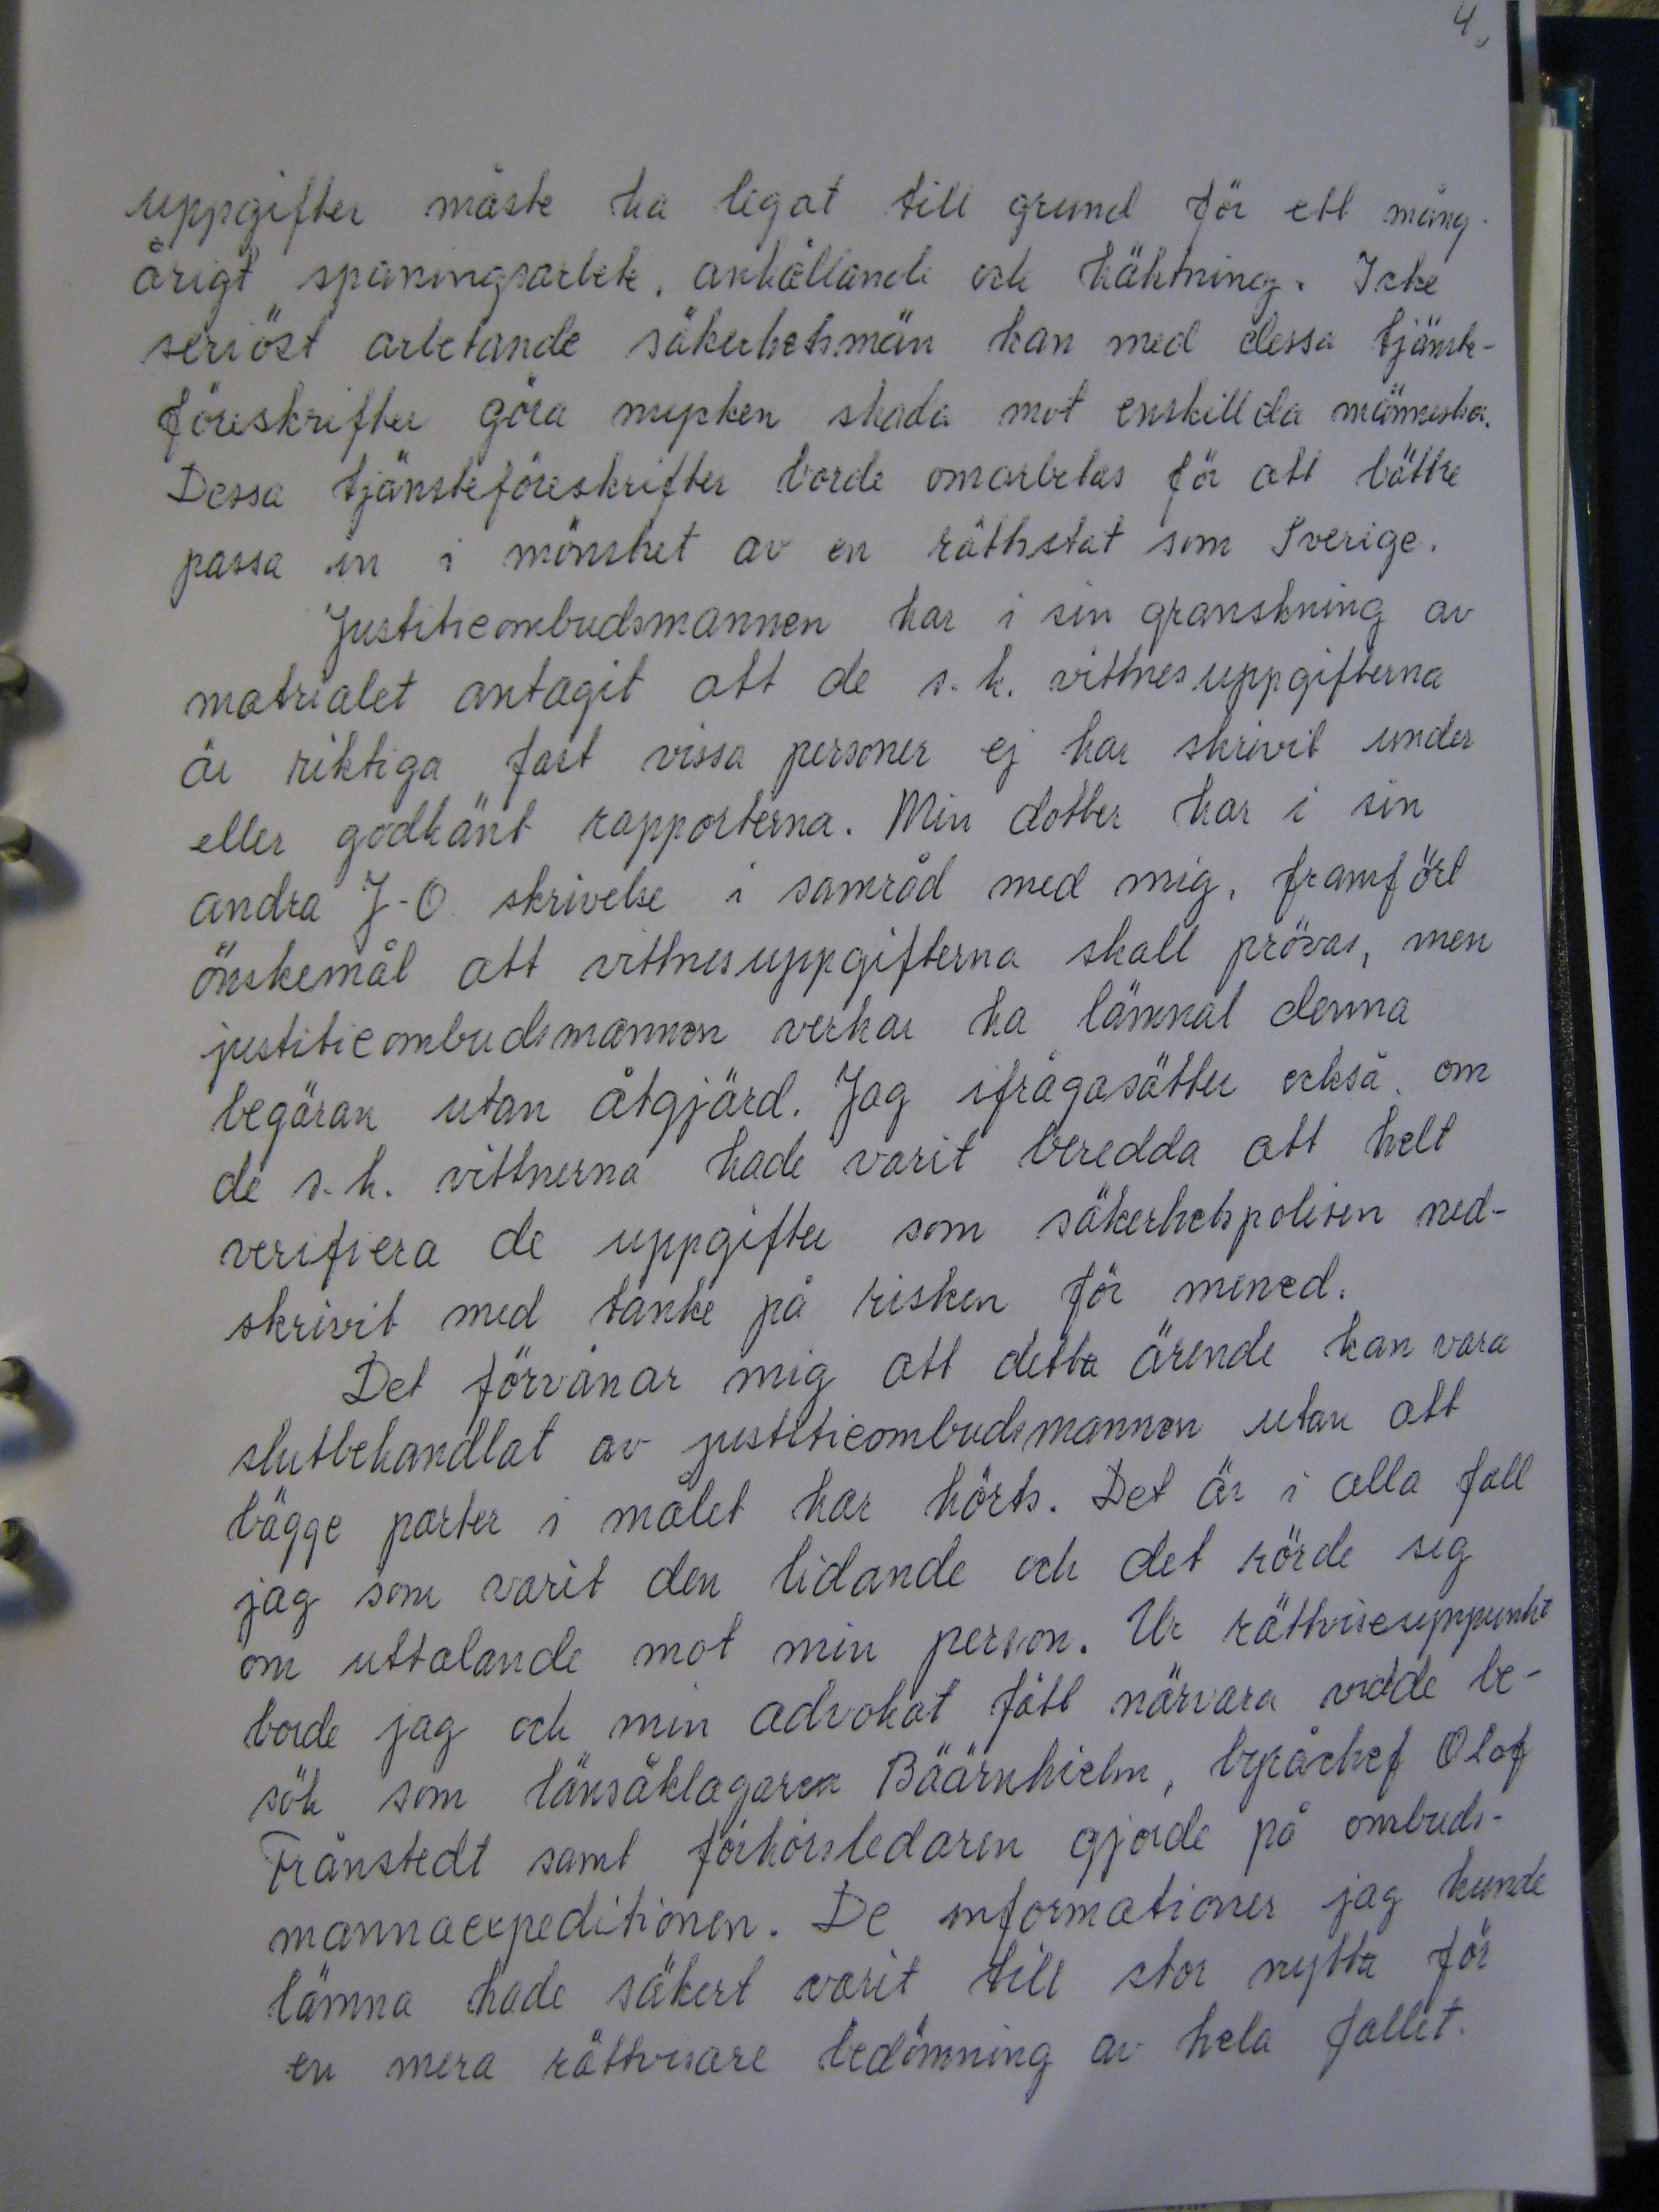 4.
uppgifter måste ha legat till grund för ett mång-
årigt spaningsarbete, anhållande och häktning. Icke
seriöst arbetande säkerhetsmän kan med dessa tjänste-
föreskrifter göra mycken skada mot enskillda människor.
Dessa tjänsteföreskrifter borde omarbetas för att bättre
passa in i mönstret av en rättsstat som Sverige.
Justitieombudsmannen har i sin granskning av
matrialet antagit att de s.k. vittnesuppgifterna
är riktiga fast vissa personer ej har skrivit under
eller godkänt rapporterna. Min dotter har i sin
andra J-O. skrivelse i samråd med mig, framfört
önskemål att vittnesuppgifterna skall prövas, men
justitieombudsmannen verkar ha lämnat denna
begäran utan åtgjärd. Jag ifrågasätter också, om
de s.k. vittnerna hade varit beredda att helt
verifiera de uppgifter som säkerhetspolisen ned-
skrivit med tanke på risken för mened.
Det förvånar mig att detta ärende kan vara
slutbehandlat av justitieombudsmannen utan att
bägge parter i målet har hörts. Det är i alla fall
jag som varit den lidande och det rörde sig
om uttalande mot min person. Ur rättvisesynpunkt
borde jag och min advokat fått närvara vid de be-
sök som länsåklagaren Bäärnhielm, byråchef Olof
Frånstedt samt förhörsledaren gjorde på ombuds-
mannaexpeditionen. De informationer jag kunde
lämna hade säkert varit till stor nytta för
en mera rättvisare bedömning av hela fallet.